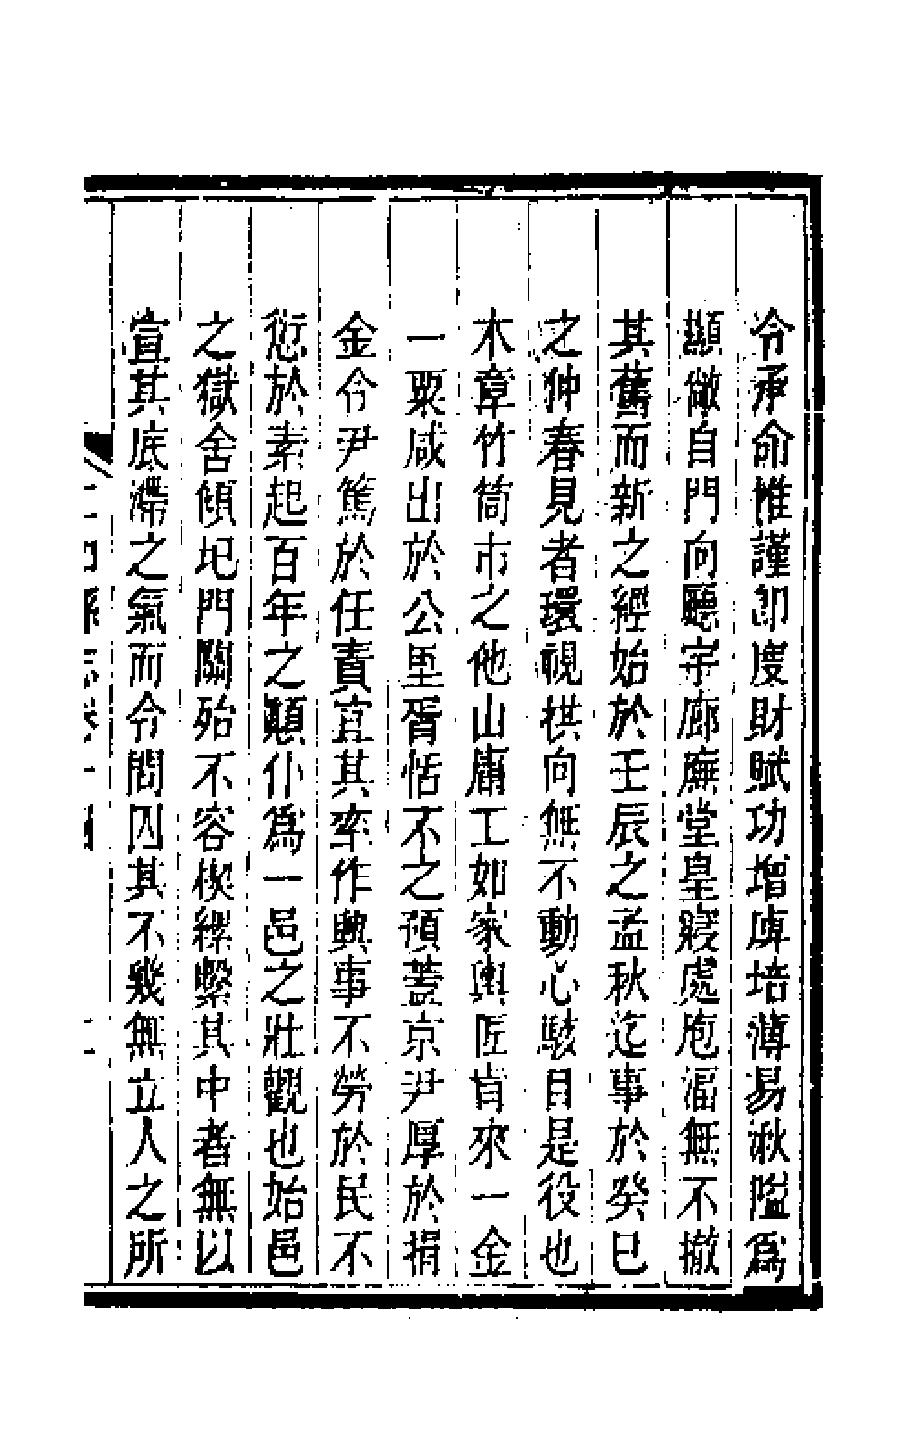 令承命惟謹卽度財賦功增庳培薄易湫隘爲
顯敞自門向廳宇廊廡堂皇寢處庖湢無不撤
其舊而新之經始於壬辰之孟秋迄事於癸巳
之狆春見者環視拱向無不動心駭目是役也
木章竹筒市之他山庸工如家輿匠肯來一金
一粟咸出於公里胥恬不之預蓋京尹厚於捐
金令尹篤於任責宜其率作興事不勞於民不
愆於素起百年之顚仆爲一邑之壯觀也始邑
之獄舍傾圮門關殆不容楔縲繫其中者無以
宣其底滯之氣而令問囚其不幾無立人之所